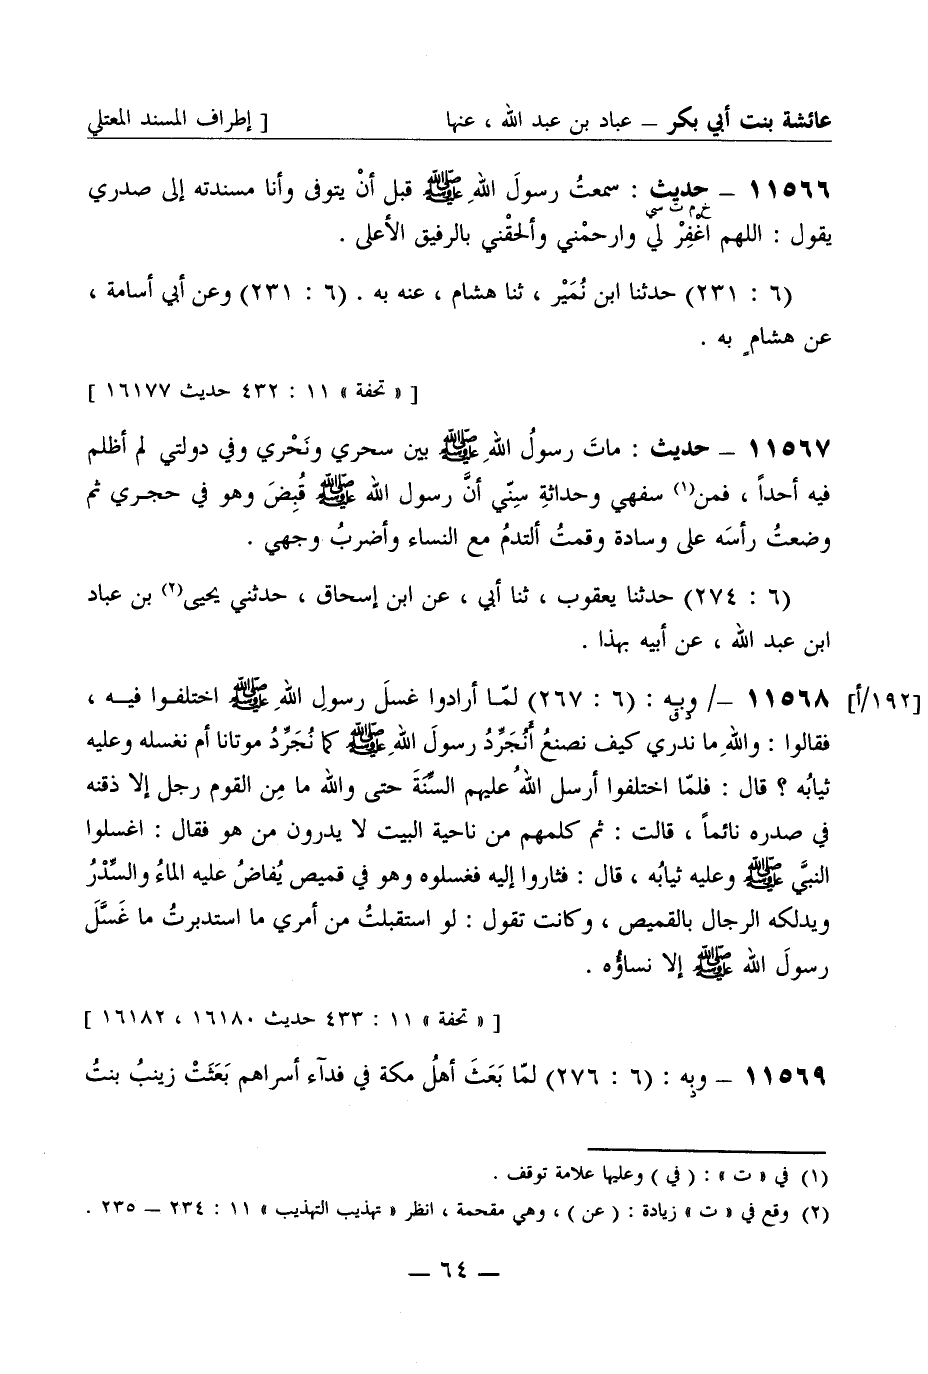 عائشة بنت أبي بكر – عباد بن عبد الله ، عنها [ إطراف المسند المعتلي
١١٥٦٦ – حديث : سمعتُ رسولَ اللهِ ﷺ قبل أنْ يتوفى وأنا مسندته إلى صدري
خ م ت سي
يقول : اللهم اغفِرْ لي وارحمْني وألحقْني بالرفيق الأعلى .
(٦ : ٢٣١) حدثنا ابن نُمَيْر ، ثنا هشام ، عنه به . (٦ : ٢٣١) وعن أبي أسامة ،
عن هشامٍ به .
[ « تحفة » ١١ : ٤٣٢ حديث ١٦١٧٧ ]
١١٥٦٧ – حديث : ماتَ رسولُ اللهِ ﷺ بين سحري ونَحْري وفي دولتي لم أظلم
فيه أحداً ، فمن(١) سفهي وحداثةِ سِنّي أنَّ رسول الله ﷺ قُبِضَ وهو في حجري ثم
وضعتُ رأسَه على وسادة وقمتُ ألتدمُ مع النساء وأضربُ وجهي .
(٦ : ٢٧٤) حدثنا يعقوب ، ثنا أبي ، عن ابن إسحاق ، حدثني يحيى(٢) بن عباد
ابن عبد الله ، عن أبيه بهذا .
[١٩٢/أ] ١١٥٦٨ –/ وبِه : (٦ : ٢٦٧) لمّا أرادوا غسلَ رسولِ اللهِ ﷺ اختلفوا فيه ،
د ق
فقالوا : واللهِ ما ندري كيف نصنعُ أَنُجَرِّدُ رسولَ اللهِ ﷺ كما نُجَرِّدُ موتانا أم نغسله وعليه
ثيابُه ؟ قال : فلمّا اختلفوا أرسل اللهُ عليهم السِّنَةَ حتى والله ما مِن القوم رجل إلا ذقنه
في صدره نائماً ، قالت : ثم كلمهم من ناحية البيت لا يدرون من هو فقال : اغسلوا
النبيَّ ﷺ وعليه ثيابُه ، قال : فثاروا إليه فغسلوه وهو في قميص يُفاضُ عليه الماءُ والسِّدْرُ
ويدلكه الرجال بالقميص ، وكانت تقول : لو استقبلتُ من أمري ما استدبرتُ ما غَسَّلَ
رسولَ الله ﷺ إلا نساؤُه .
[ « تحفة » ١١ : ٤٣٣ حديث ١٦١٨٠ ، ١٦١٨٢ ]
١١٥٦٩ – وبِه : (٦ : ٢٧٦) لمّا بَعَثَ أهلُ مكة في فدآء أسراهم بَعَثَتْ زينبُ بنتُ
د
(١) في « ت » : ( في ) وعليها علامة توقف .
(٢) وقع في « ت » زيادة : ( عن ) ، وهي مقحمة ، انظر « تهذيب التهذيب » ١١ : ٢٣٤ – ٢٣٥ .
– ٦٤ –